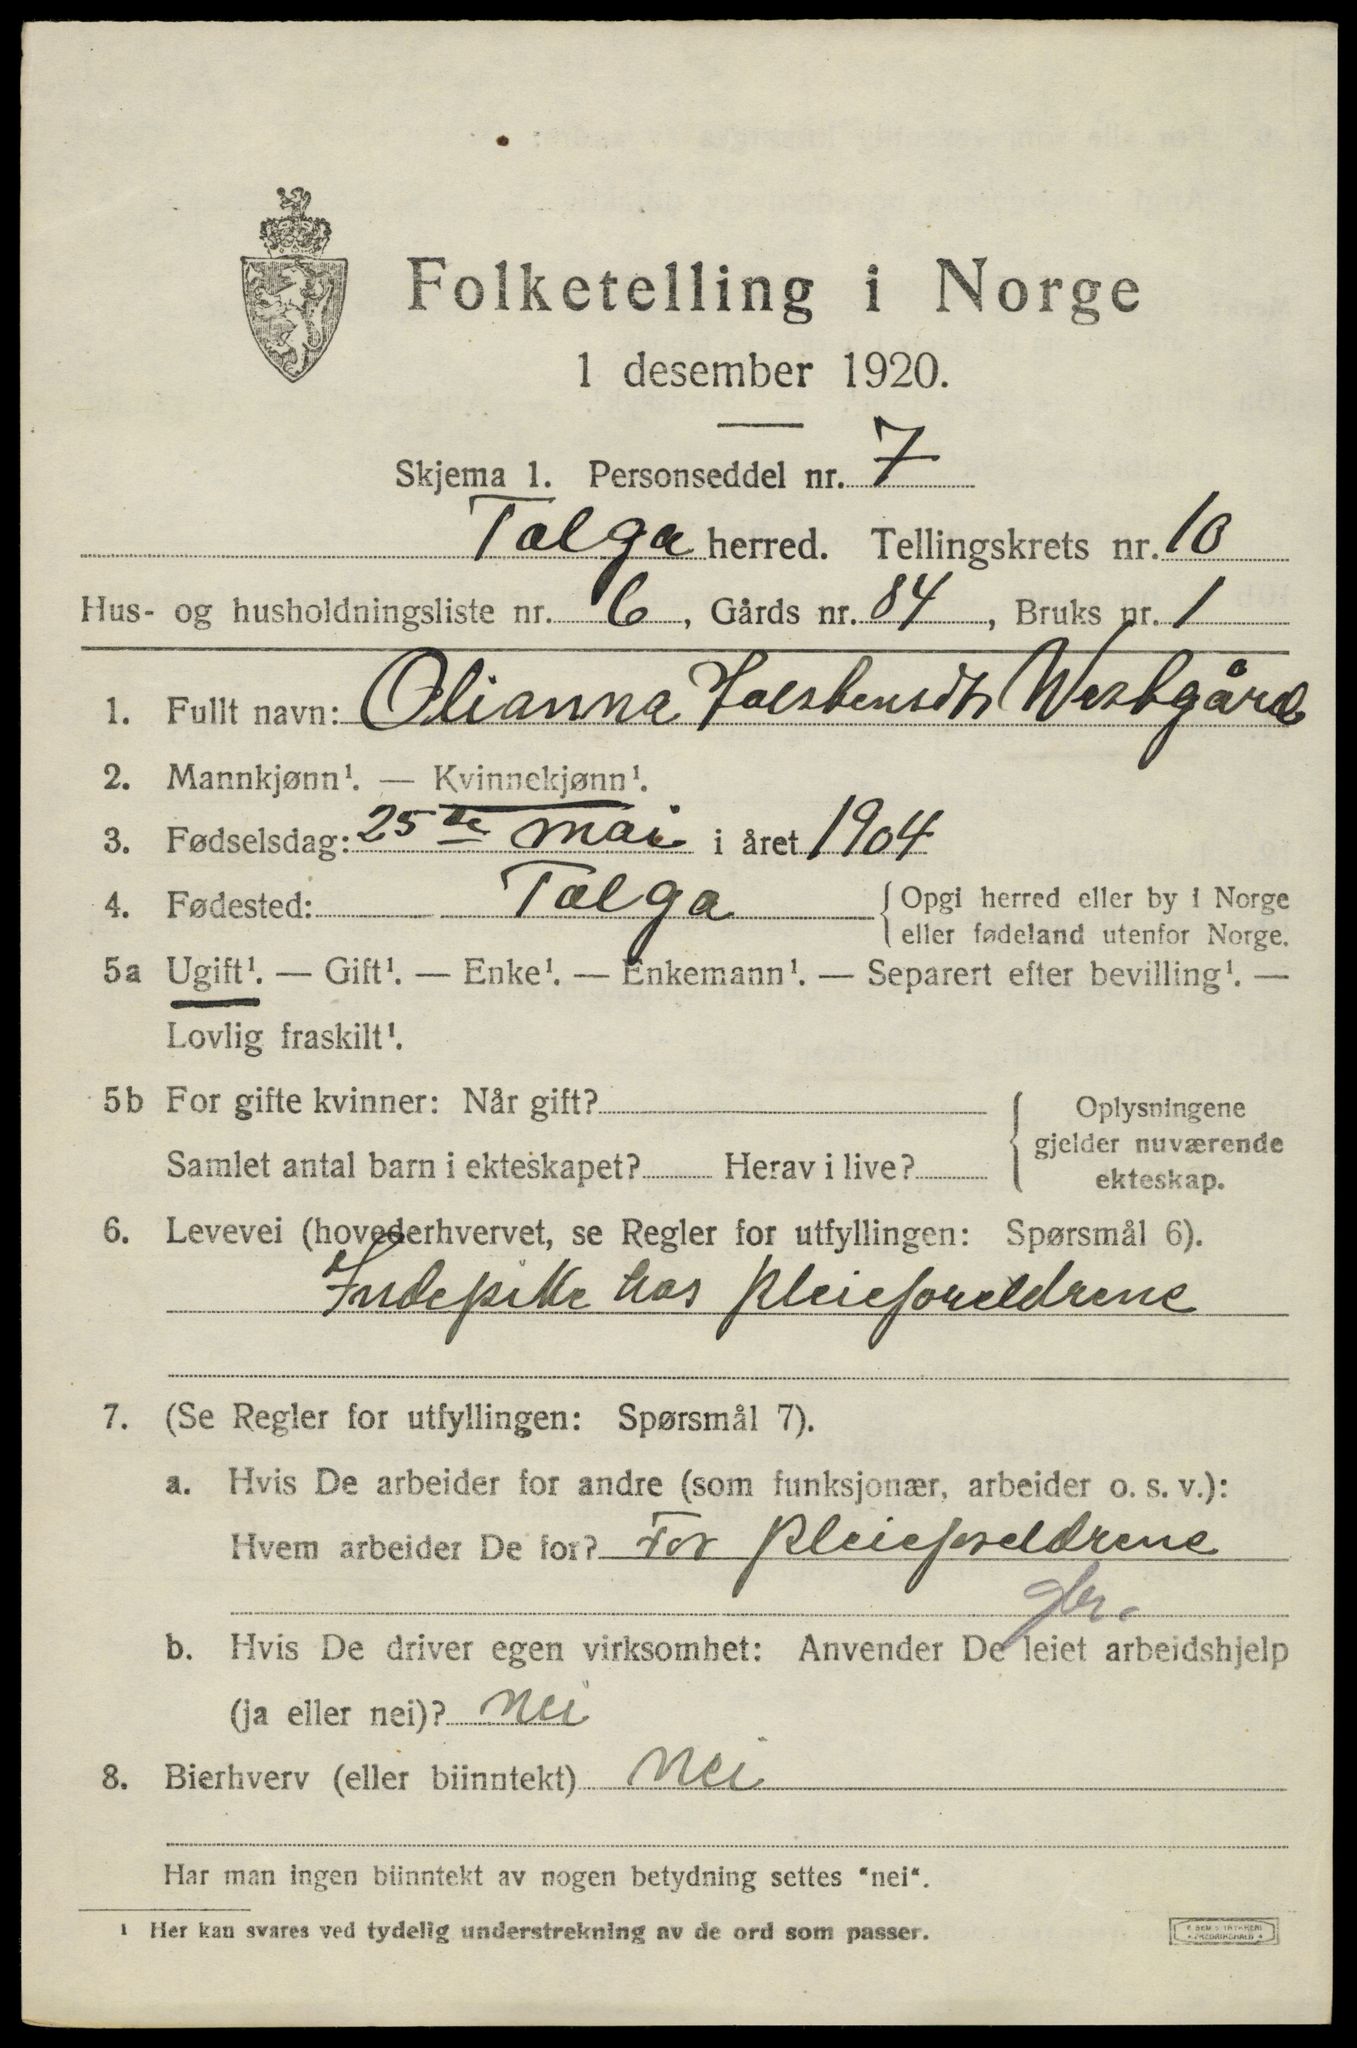 Folketelling i Norge
1 desember 1920.
Skjema 1. Personseddel nr. 7
Tolga herred. Tellingskrets nr. 10
Hus- og husholdningsliste nr. 6, Gårds nr. 84, Bruks nr. 1
1. Fullt navn: Olianna Westgård
2. Mannkjønn¹. — Kvinnekjønn¹.
3. Fødselsdag: 25de mai i året 1904
4. Fødested: Tolga {Opgi herred eller by i Norge
eller fødeland utenfor Norge.
5a Ugift¹. — Gift¹. — Enke¹. — Enkemann¹. — Separert efter bevilling¹. —
Lovlig fraskilt¹.
5b For gifte kvinner: Når gift?
Samlet antal barn i ekteskapet? Herav i live?
{Oplysningene
gjelder nuværende
ekteskap.
6. Levevei (hovederhvervet, se Regler for utfyllingen: Spørsmål 6).
Indepike hos pleieforeldrene
7. (Se Regler for utfyllingen: Spørsmål 7).
a. Hvis De arbeider for andre (som funksjonær, arbeider o. s. v.):
Hvem arbeider De for? For pleieforeldrene
gbr.
b. Hvis De driver egen virksomhet: Anvender De leiet arbeidshjelp
(ja eller nei)? nei
8. Bierhverv (eller biinntekt) nei
Har man ingen biinntekt av nogen betydning settes "nei".
¹ Her kan svares ved tydelig understrekning av de ord som passer.